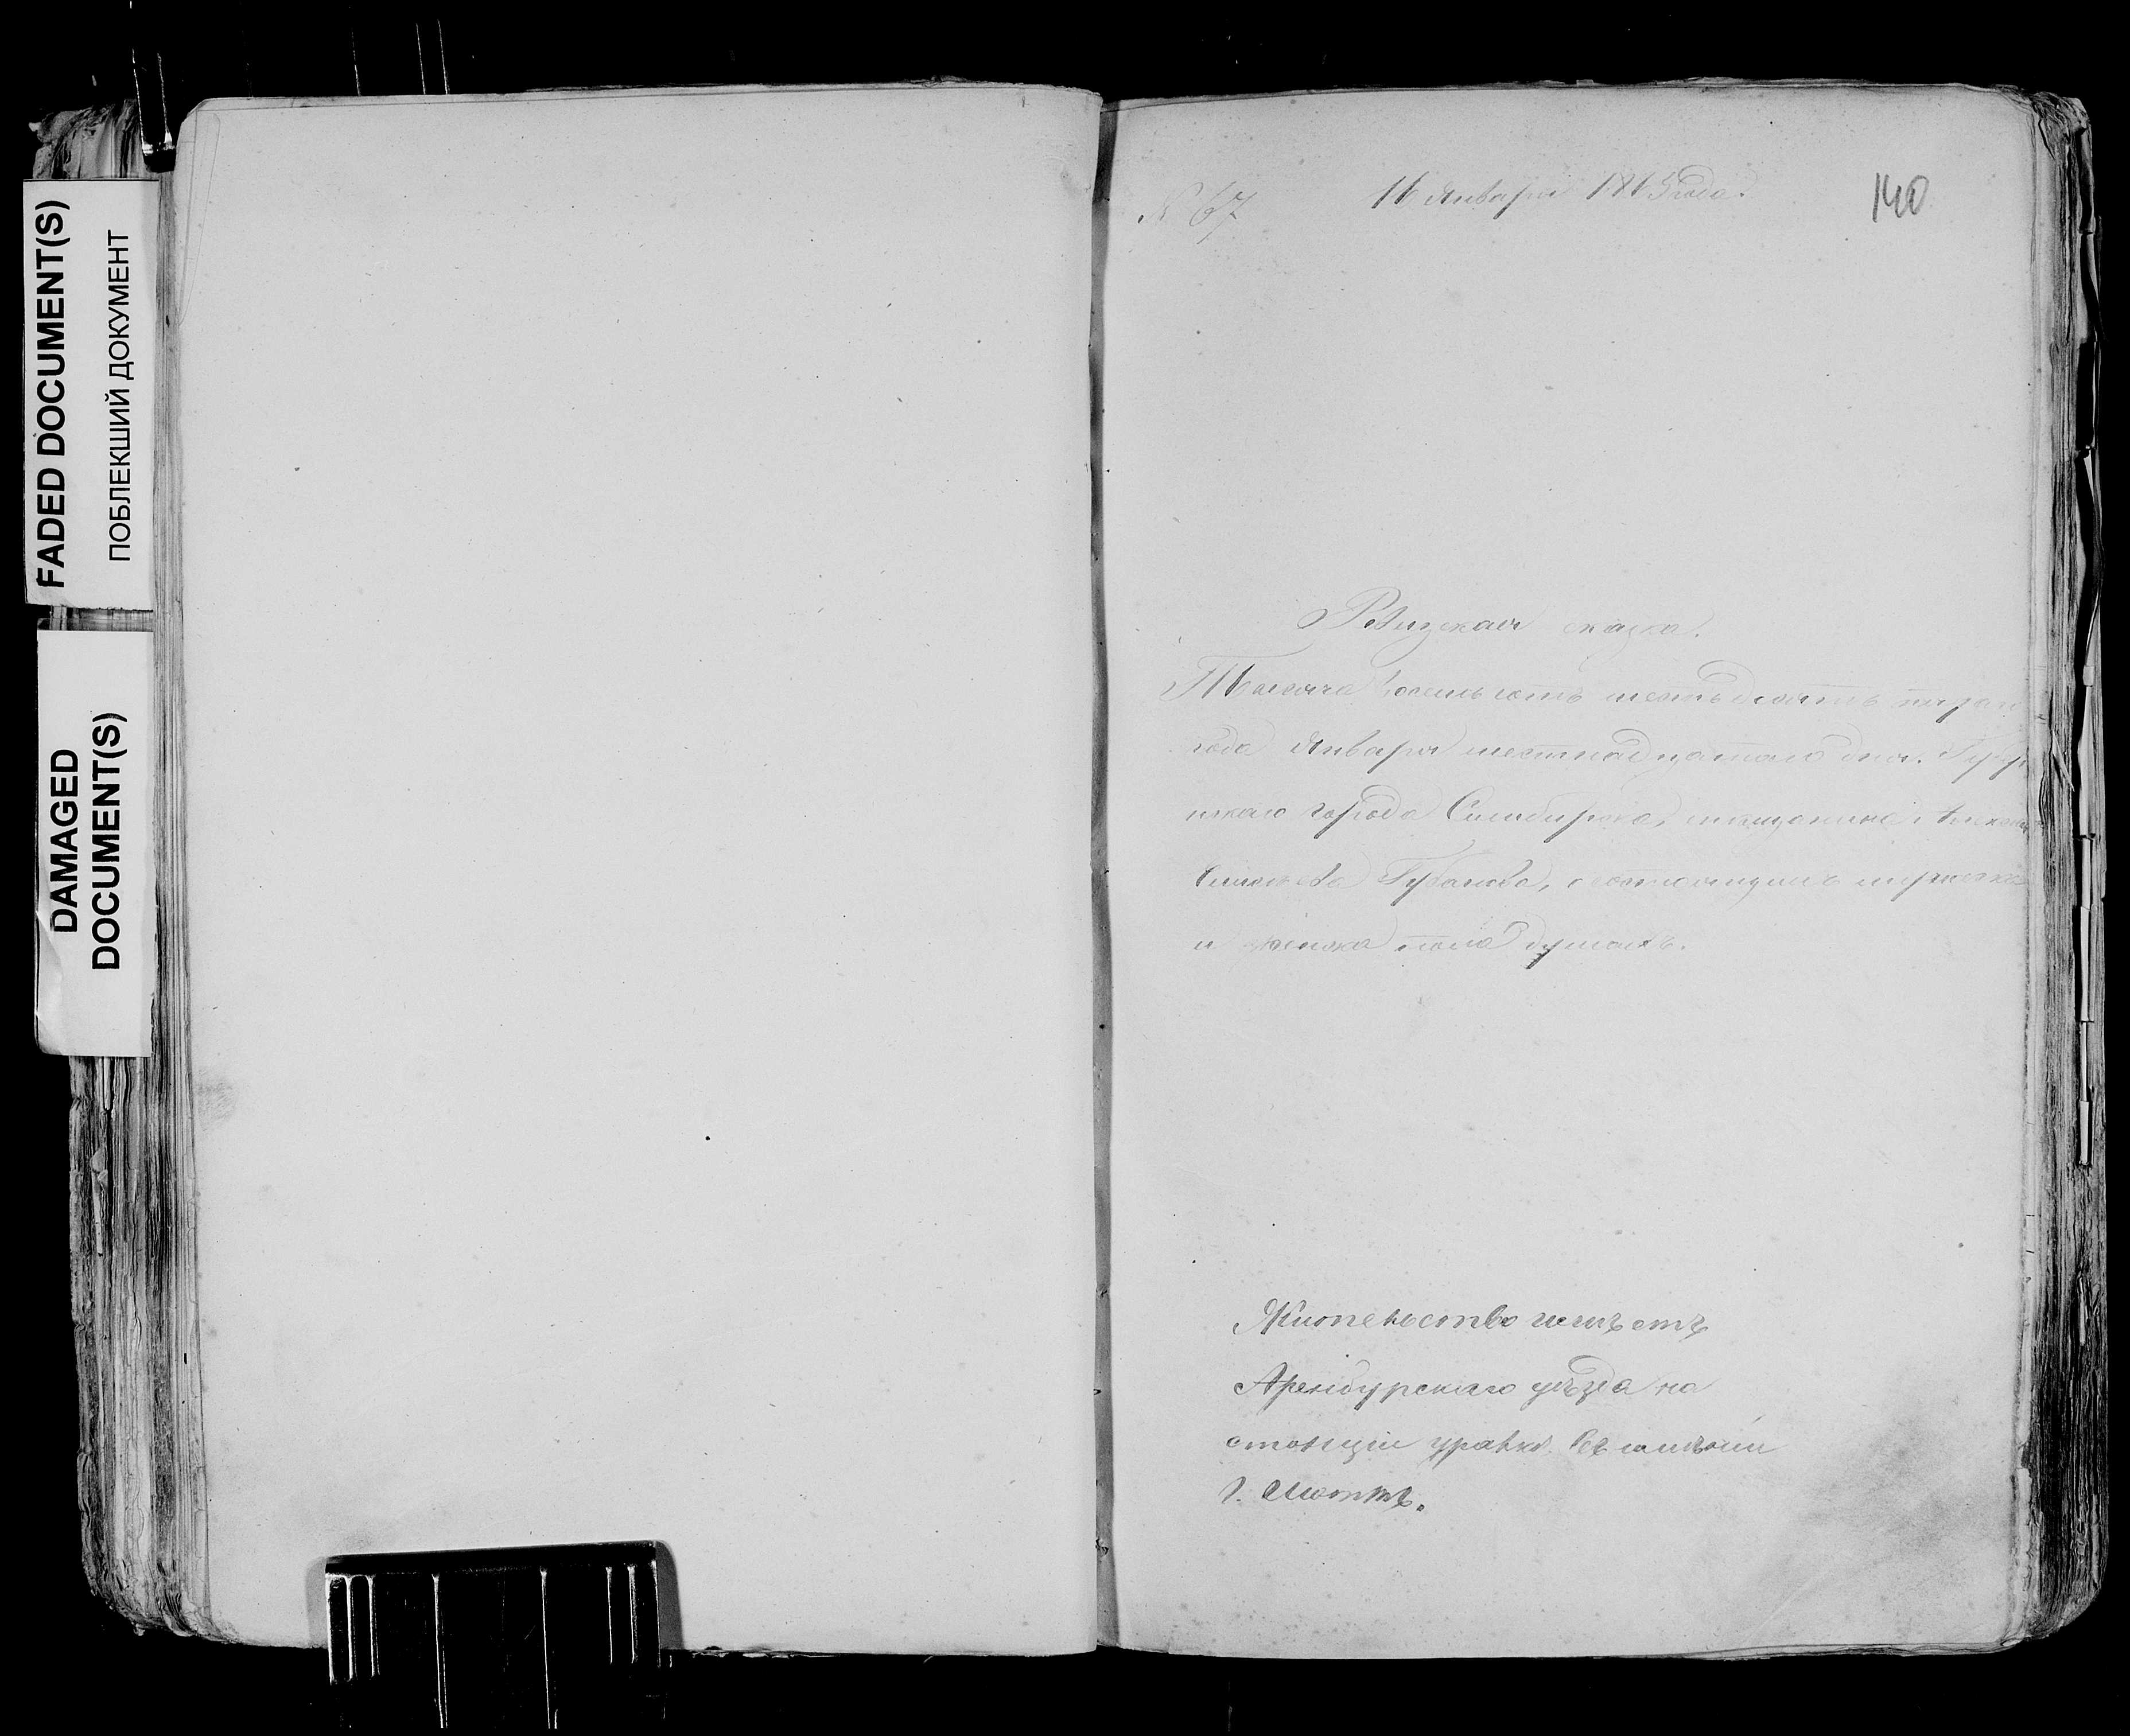 FADED DOCUMENT(S)
ПОБЛЕКШИЙ ДОКУМЕНТ
DAMAGED
DOCUMENT(S)
№ 67
16 Января 1865 года.
140
Ревизская сказка.
Тысяча восемьсотъ шестьдесятъ
года Января шестнадцатаго дня.
города Симбирска, мещанина
Губанова, о состоящихъ мужска
и женска пола душахъ.
Жительство имѣетъ
Аренбургскаго уѣзда на
г.